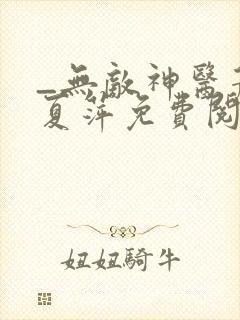 _無敵神醫
夏萍免費閱
妞妞騎牛